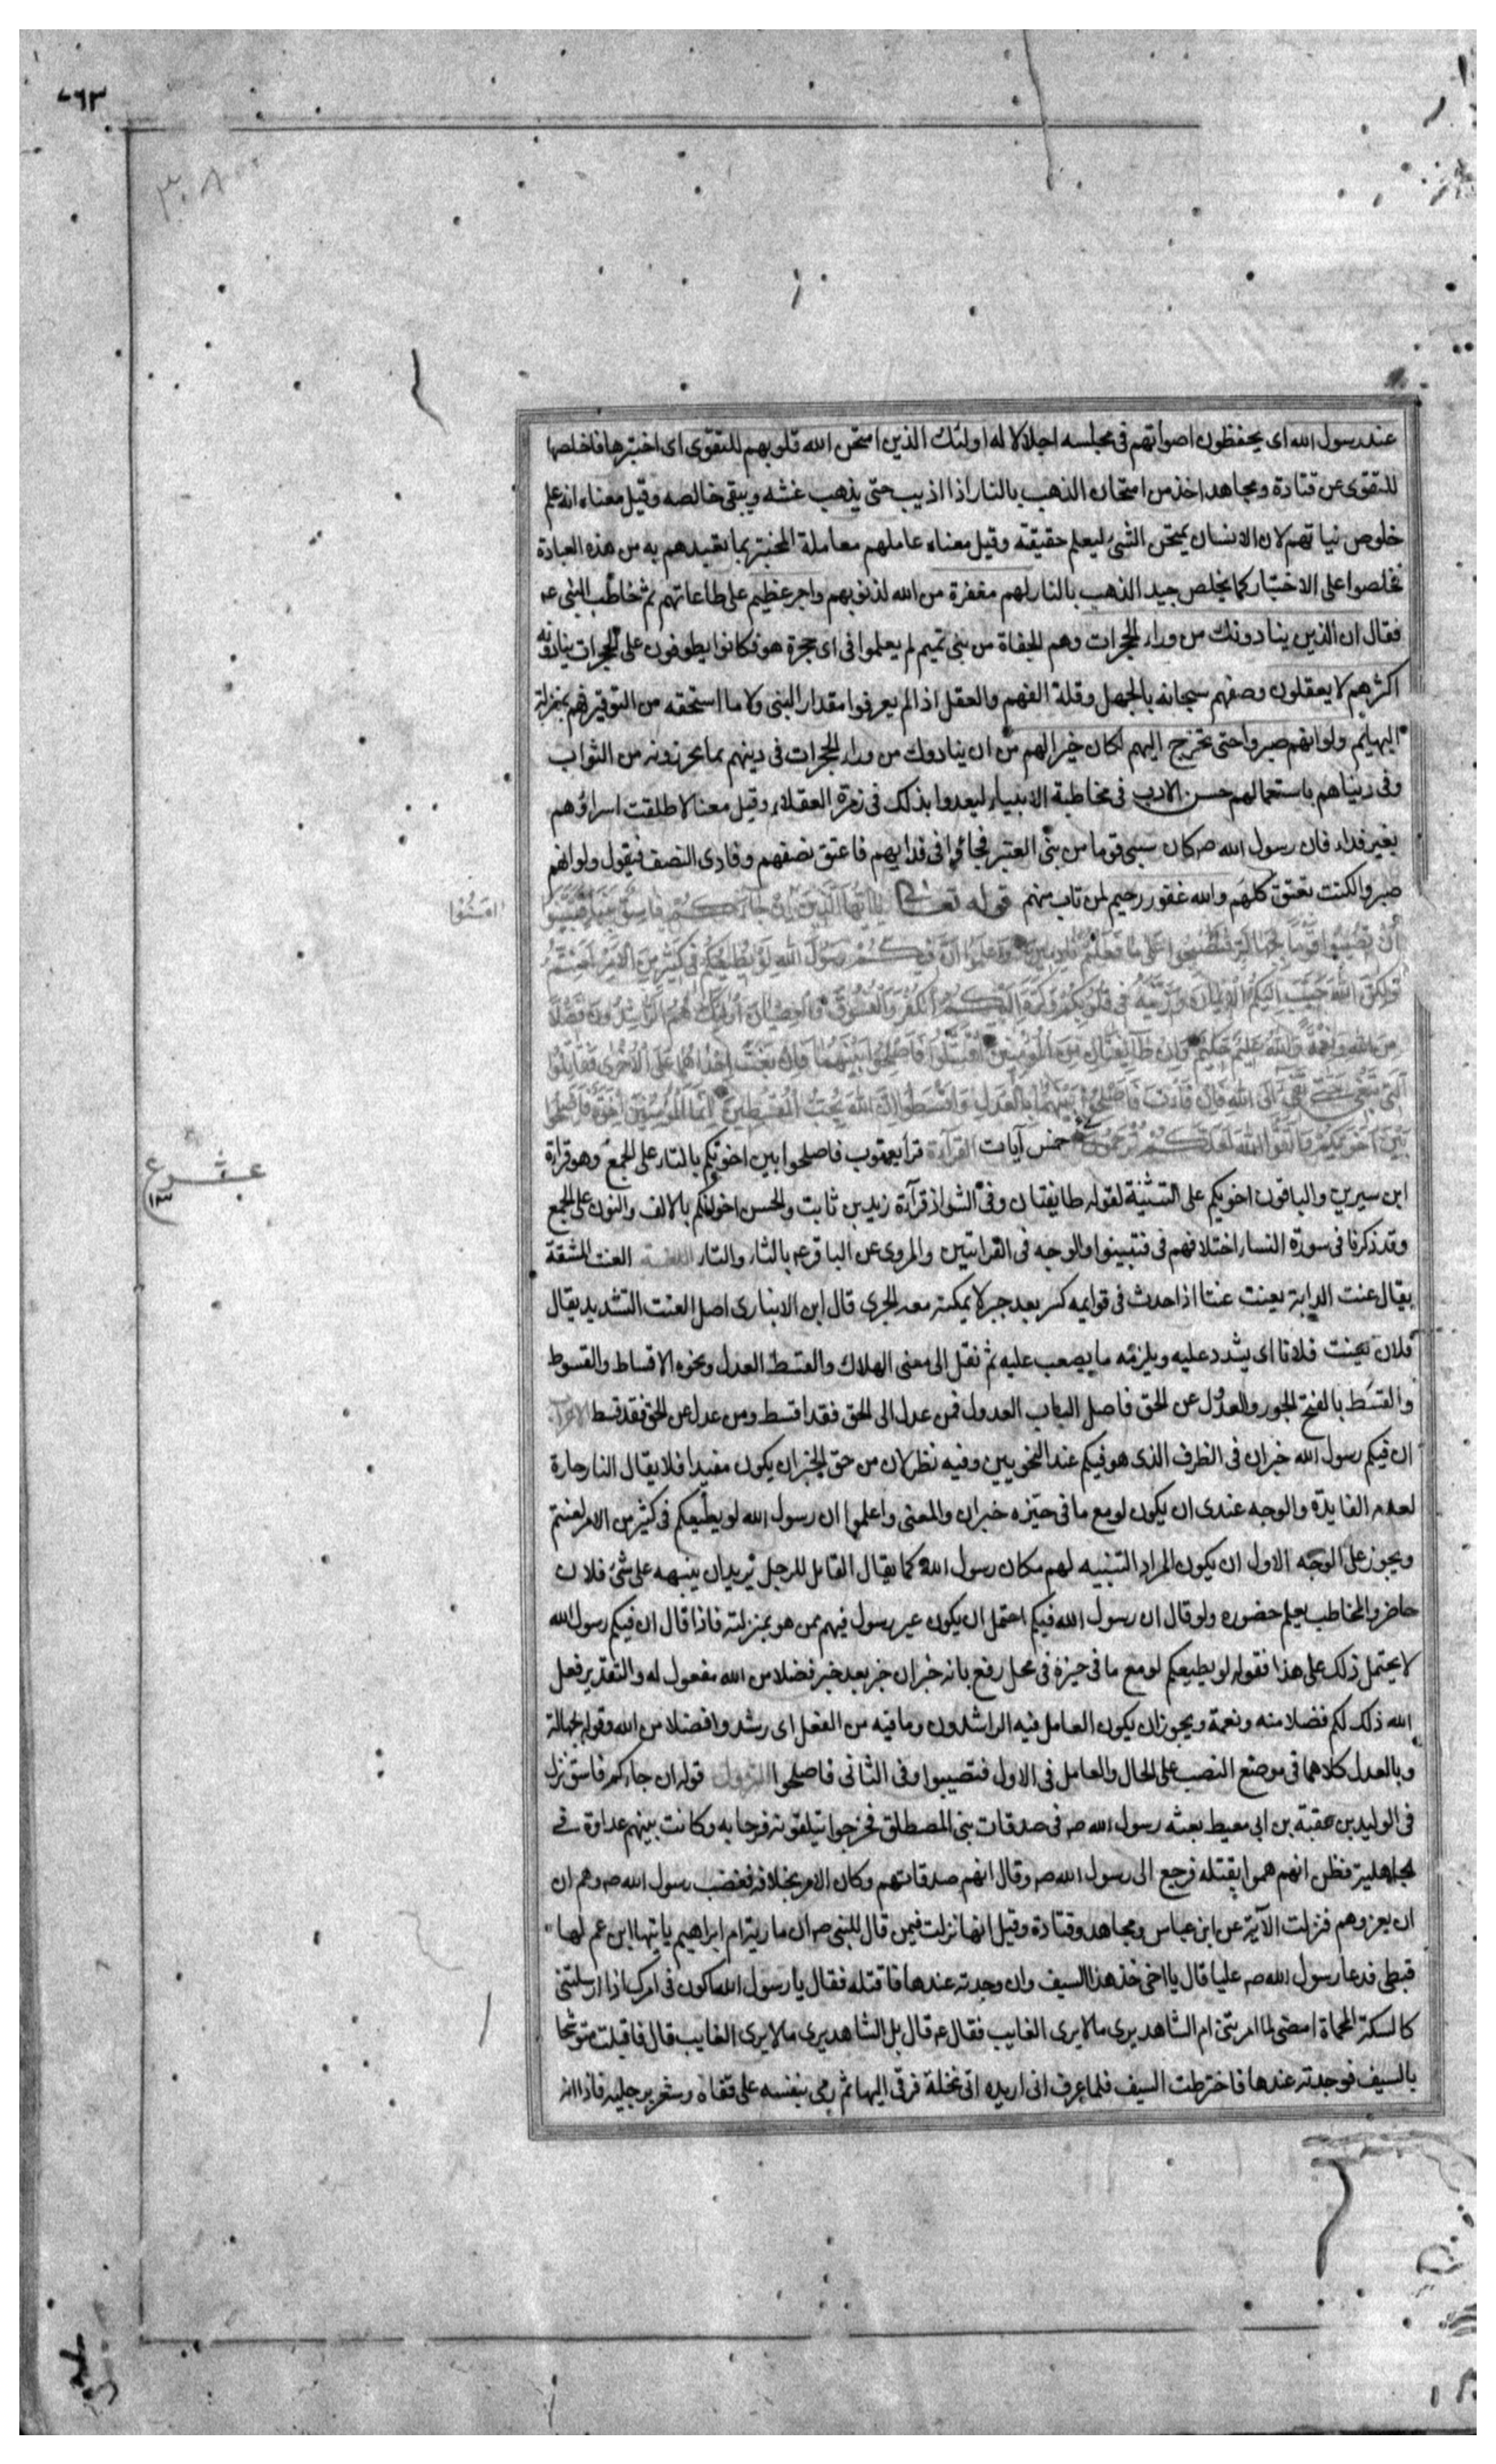 ٧٦٣
٣٠٨
عند رسول الله اى يحفظون اصواتهم فى مجلسه اجلالا له اولئك الذين امتحن الله قلوبهم للتقوى اى اختبرها فاخلصها
للتقوى عن قتادة ومجاهد اخذ من امتحان الذهب بالنار اذا اذيب حتى يذهب غشه ويبقى خالصه وقيل معناه انه علم
خلوص نياتهم لان الانسان يمتحن الشئ ليعلم حقيقته وقيل معناه عاملهم معاملة المختبر بما تعبدهم به من هذه العبادة
فخلصوا على الاختبار كما يخلص جيد الذهب بالنار لهم مغفرة من الله لذنوبهم واجر عظيم على طاعاتهم ثم خاطب النبى عم
فقال ان الذين ينادونك من وراء الحجرات وهم الجفاة من بنى تميم لم يعلموا فى اى حجرة هو فكانوا يطوفون على الحجرات ينادونه
اكثرهم لا يعقلون وصفهم سبحانه بالجهل وقلة الفهم والعقل اذ لم يعرفوا مقدار النبى ولا ما استحقه من التوقير فهم بمنزلة
البهايم ولو انهم صبروا حتى تخرج اليهم لكان خيرا لهم من ان ينادوك من وراء الحجرات فى دينهم بما يحرزونه من الثواب
وفى دنياهم باستعمالهم حسن الادب فى مخاطبة الانبياء ليعدوا بذلك فى زمرة العقلاء وقيل معناه لاطلقت اسراؤهم
بغير فداء فان رسول الله ص كان سبى قوما من بنى العنبر فجائوا فى فدايهم فاعتق نصفهم وفادى النصف فيقول ولو انهم
صبروا لكنت تعتق كلهم والله غفور رحيم لمن تاب منهم قوله تعالى يا ايها الذين آمنوا ان جاءكم فاسق بنبأ فتبينوا
ان تصيبوا قوما بجهالة فتصبحوا على ما فعلتم نادمين واعلموا ان فيكم رسول الله لو يطيعكم فى كثير من الامر لعنتم
ولكن الله حبب اليكم الايمان وزينه فى قلوبكم وكره اليكم الكفر والفسوق والعصيان اولئك هم الراشدون فضلا
من الله ونعمة والله عليم حكيم وان طائفتان من المؤمنين اقتتلوا فاصلحوا بينهما فان بغت احداهما على الاخرى فقاتلوا
التى تبغى حتى تفئ الى امر الله فان فاءت فاصلحوا بينهما بالعدل واقسطوا ان الله يحب المقسطين انما المؤمنون اخوة فاصلحوا
بين اخويكم واتقوا الله لعلكم ترحمون خمس آيات القراءة قرأ يعقوب فاصلحوا بين اخوتكم بالتاء على الجمع وهو قراءة
ابن سيرين والباقون اخويكم على التثنية لقوله طايفتان وفى الشواذ قرآءة زيد بن ثابت والحسن اخوانكم بالالف والنون على الجمع
وقد ذكرنا فى سورة النساء اختلافهم فى فتبينوا والوجه فى القرائتين والمروى عن الباقر عم بالثاء والتاء اللغة العنت المشقة
يقال عنت الدابة يعنت عنتا اذا حدث فى قوايمه كسر بعد جبر لا يمكنه معه الجرى قال ابن الانبارى اصل العنت التشديد يقال
فلان يعنت فلانا اى يشدد عليه ويلزمه ما يصعب عليه ثم نقل الى معنى الهلاك والقسط العدل ونحوه الاقساط والقسوط
والقسط بالفتح الجور والعدول عن الحق فاصل الباب العدول فمن عدل الى الحق فقد اقسط ومن عدل عن الحق فقد قسط
ان فيكم رسول الله خبر ان فى الظرف الذى هو فيكم عند النحويين وفيه نظر لان من حق الخبر ان يكون مفيدا فلا يقال النار حارة
لعدم الفايدة والوجه عندى ان يكون لو مع ما فى حيزه خبر ان والمعنى واعلموا ان رسول الله لو يطيعكم فى كثير من الامر لعنتم
ويجوز على الوجه الاول ان يكون المراد التنبيه لهم مكان رسول الله كما يقال القايل للرجل يريد ان ينبهه على شئ فلان
حاضر والمخاطب يعلم حضوره ولو قال ان رسول الله فيكم احتمل ان يكون غير رسول فيهم ممن هو بمنزلته فاذا قال ان فيكم رسول الله
لا يحتمل ذلك على هذا فقوله لو يطيعكم لو مع ما فى حيزه فى محل رفع بانه خبر ان خبر بعد خبر فضلا من الله مفعول له والتقدير فعل
الله ذلك لكم فضلا منه ونعمة ويجوز ان يكون العامل فيه الراشدون وما فيه من الفعل اى رشدوا فضلا من الله وقوله بجهالة
وبالعدل كلاهما فى موضع النصب على الحال والعامل فى الاول فتصيبوا وفى الثانى فاصلحوا النزول قوله ان جاءكم فاسق نزل
فى الوليد بن عقبة بن ابى معيط بعثه رسول الله ص فى صدقات بنى المصطلق فخرجوا يتلقونه فرحا به وكانت بينهم عداوة فى
الجاهلية فظن انهم هموا بقتله فرجع الى رسول الله ص وقال انهم صدقاتهم وكان الامر بخلافه فغضب رسول الله ص وهم ان
ان يغزوهم فنزلت الآية عن ابن عباس ومجاهد وقتادة وقيل انها نزلت فيمن قال للنبى ص ان مارية ام ابراهيم ياتيها ابن عم لها
قبطى فدعا رسول الله ص عليا قال يا اخى خذ هذا السيف وان وجدته عندها فاقتله فقال يا رسول الله اكون فى امرك اذا ارسلتنى
كالسكة المحماة امضى لما امرتنى ام الشاهد يرى ما لا يرى الغايب فقال عم قال بل الشاهد يرى ما لا يرى الغايب قال فاقبلت متوشحا
بالسيف فوجدته عندها فاخترطت السيف فلما عرف انى اريده اتى نخلة فرقى اليها ثم رمى بنفسه على قفاه وشغر برجليه فاذا انه
عشرع